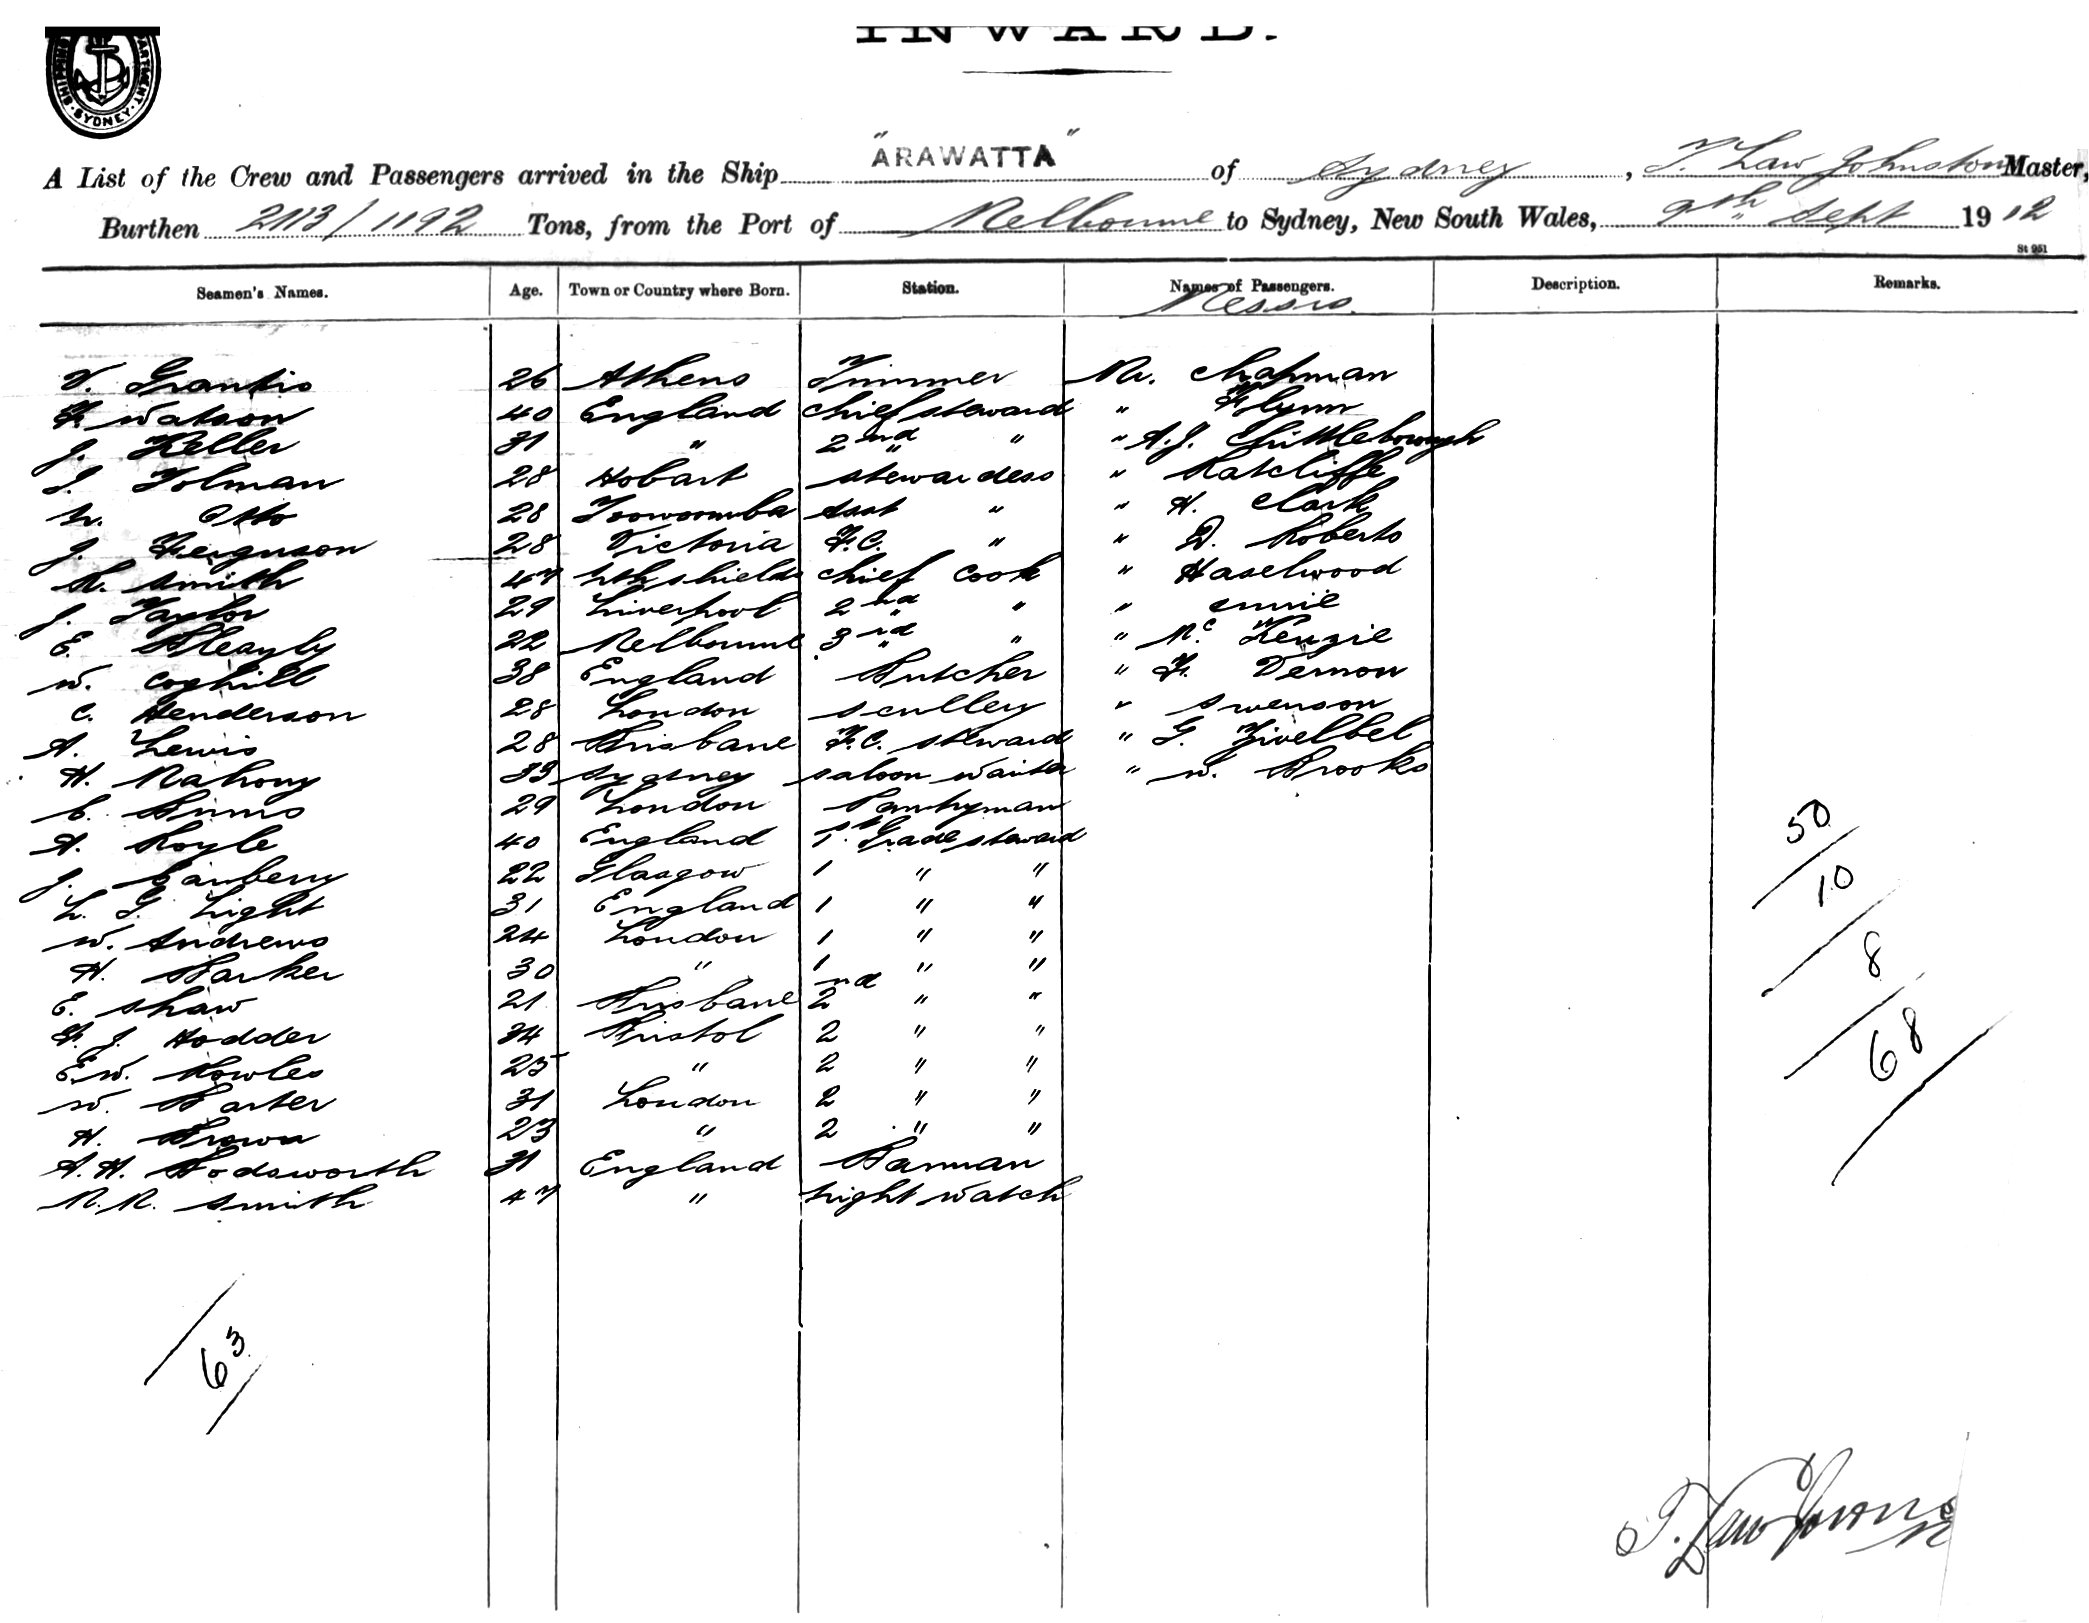 INWARD.
SHIPPING DEPARTMENT SYDNEY
A List of the Crew and Passengers arrived in the Ship "ARAWATTA" of Sydney, T. Law Johnston Master,
Burthen 2113/1192 Tons, from the Port of Melbourne to Sydney, New South Wales, 9th Sept 1912
St 951
Seamen's Names. Age. Town or Country where Born. Station. Names of Passengers. Description. Remarks.
Messrs.
V. Grantis 26 Athens Trimmer Mr. Chapman
F. Watson 40 England Chief steward " Flynn
J. Keller 31 " 2nd " " A.J. Chittleborough
I. Tolman 28 Hobart stewardess " Ratcliffe
M. Otto 28 Toowoomba Asst " " H. Clark
J. Ferguson 28 Victoria F.C. " " D. Roberts
R. Smith 47 Nth Shields Chief Cook " Haselwood
J. Taylor 29 Liverpool 2nd " "
E. 22 Melbourne 3rd " " Mc Kenzie
W. Coghill 38 England Butcher " F. Vernon
C. Henderson 28 London Scullery " Swenson
A. Lewis 28 Brisbane F.C. Steward " G.
H. Mahony 33 Sydney Saloon Waiter " W. Brooks
C. Binns 29 London Pantryman
A. Royle 40 England 1st Grade steward
J. Canberry 22 Glasgow 1 " "
L. G. Light 31 England 1 " "
W. Andrews 24 London 1 " "
H. Barker 30 " 1 " "
E. Shaw 21 Brisbane 2nd " "
F. J. Hodder 34 Bristol 2 " "
E.W. Rowles 25 " 2 " "
W. Barter 31 London 2 " "
H. Brown 23 " 2 " "
A. H. Hodsworth 31 England Barman
M. M. Smith 47 " Night Watch
50
10
8
68
63
T. Law Johnston